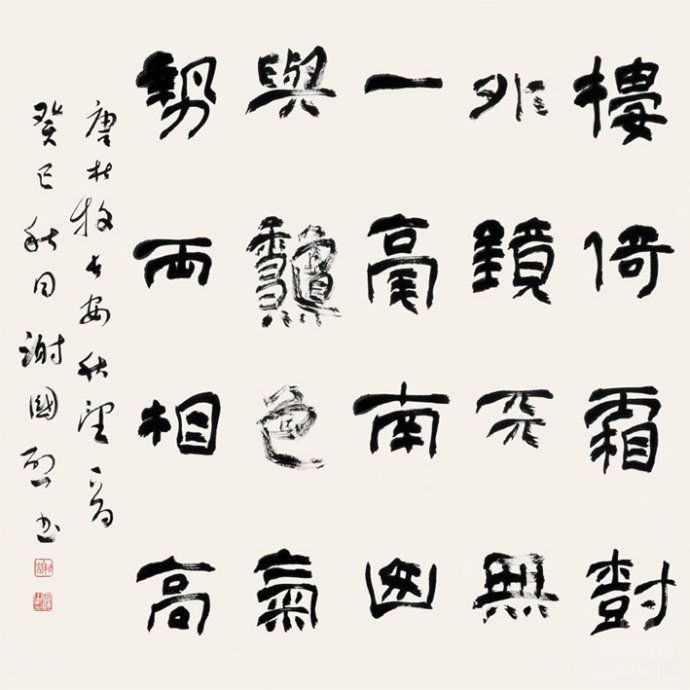 樓倚霜樹
外鏡天無
一毫南山
與龝色氣
勢兩相高
唐杜牧長安秋望一首
癸巳秋月謝國烈書